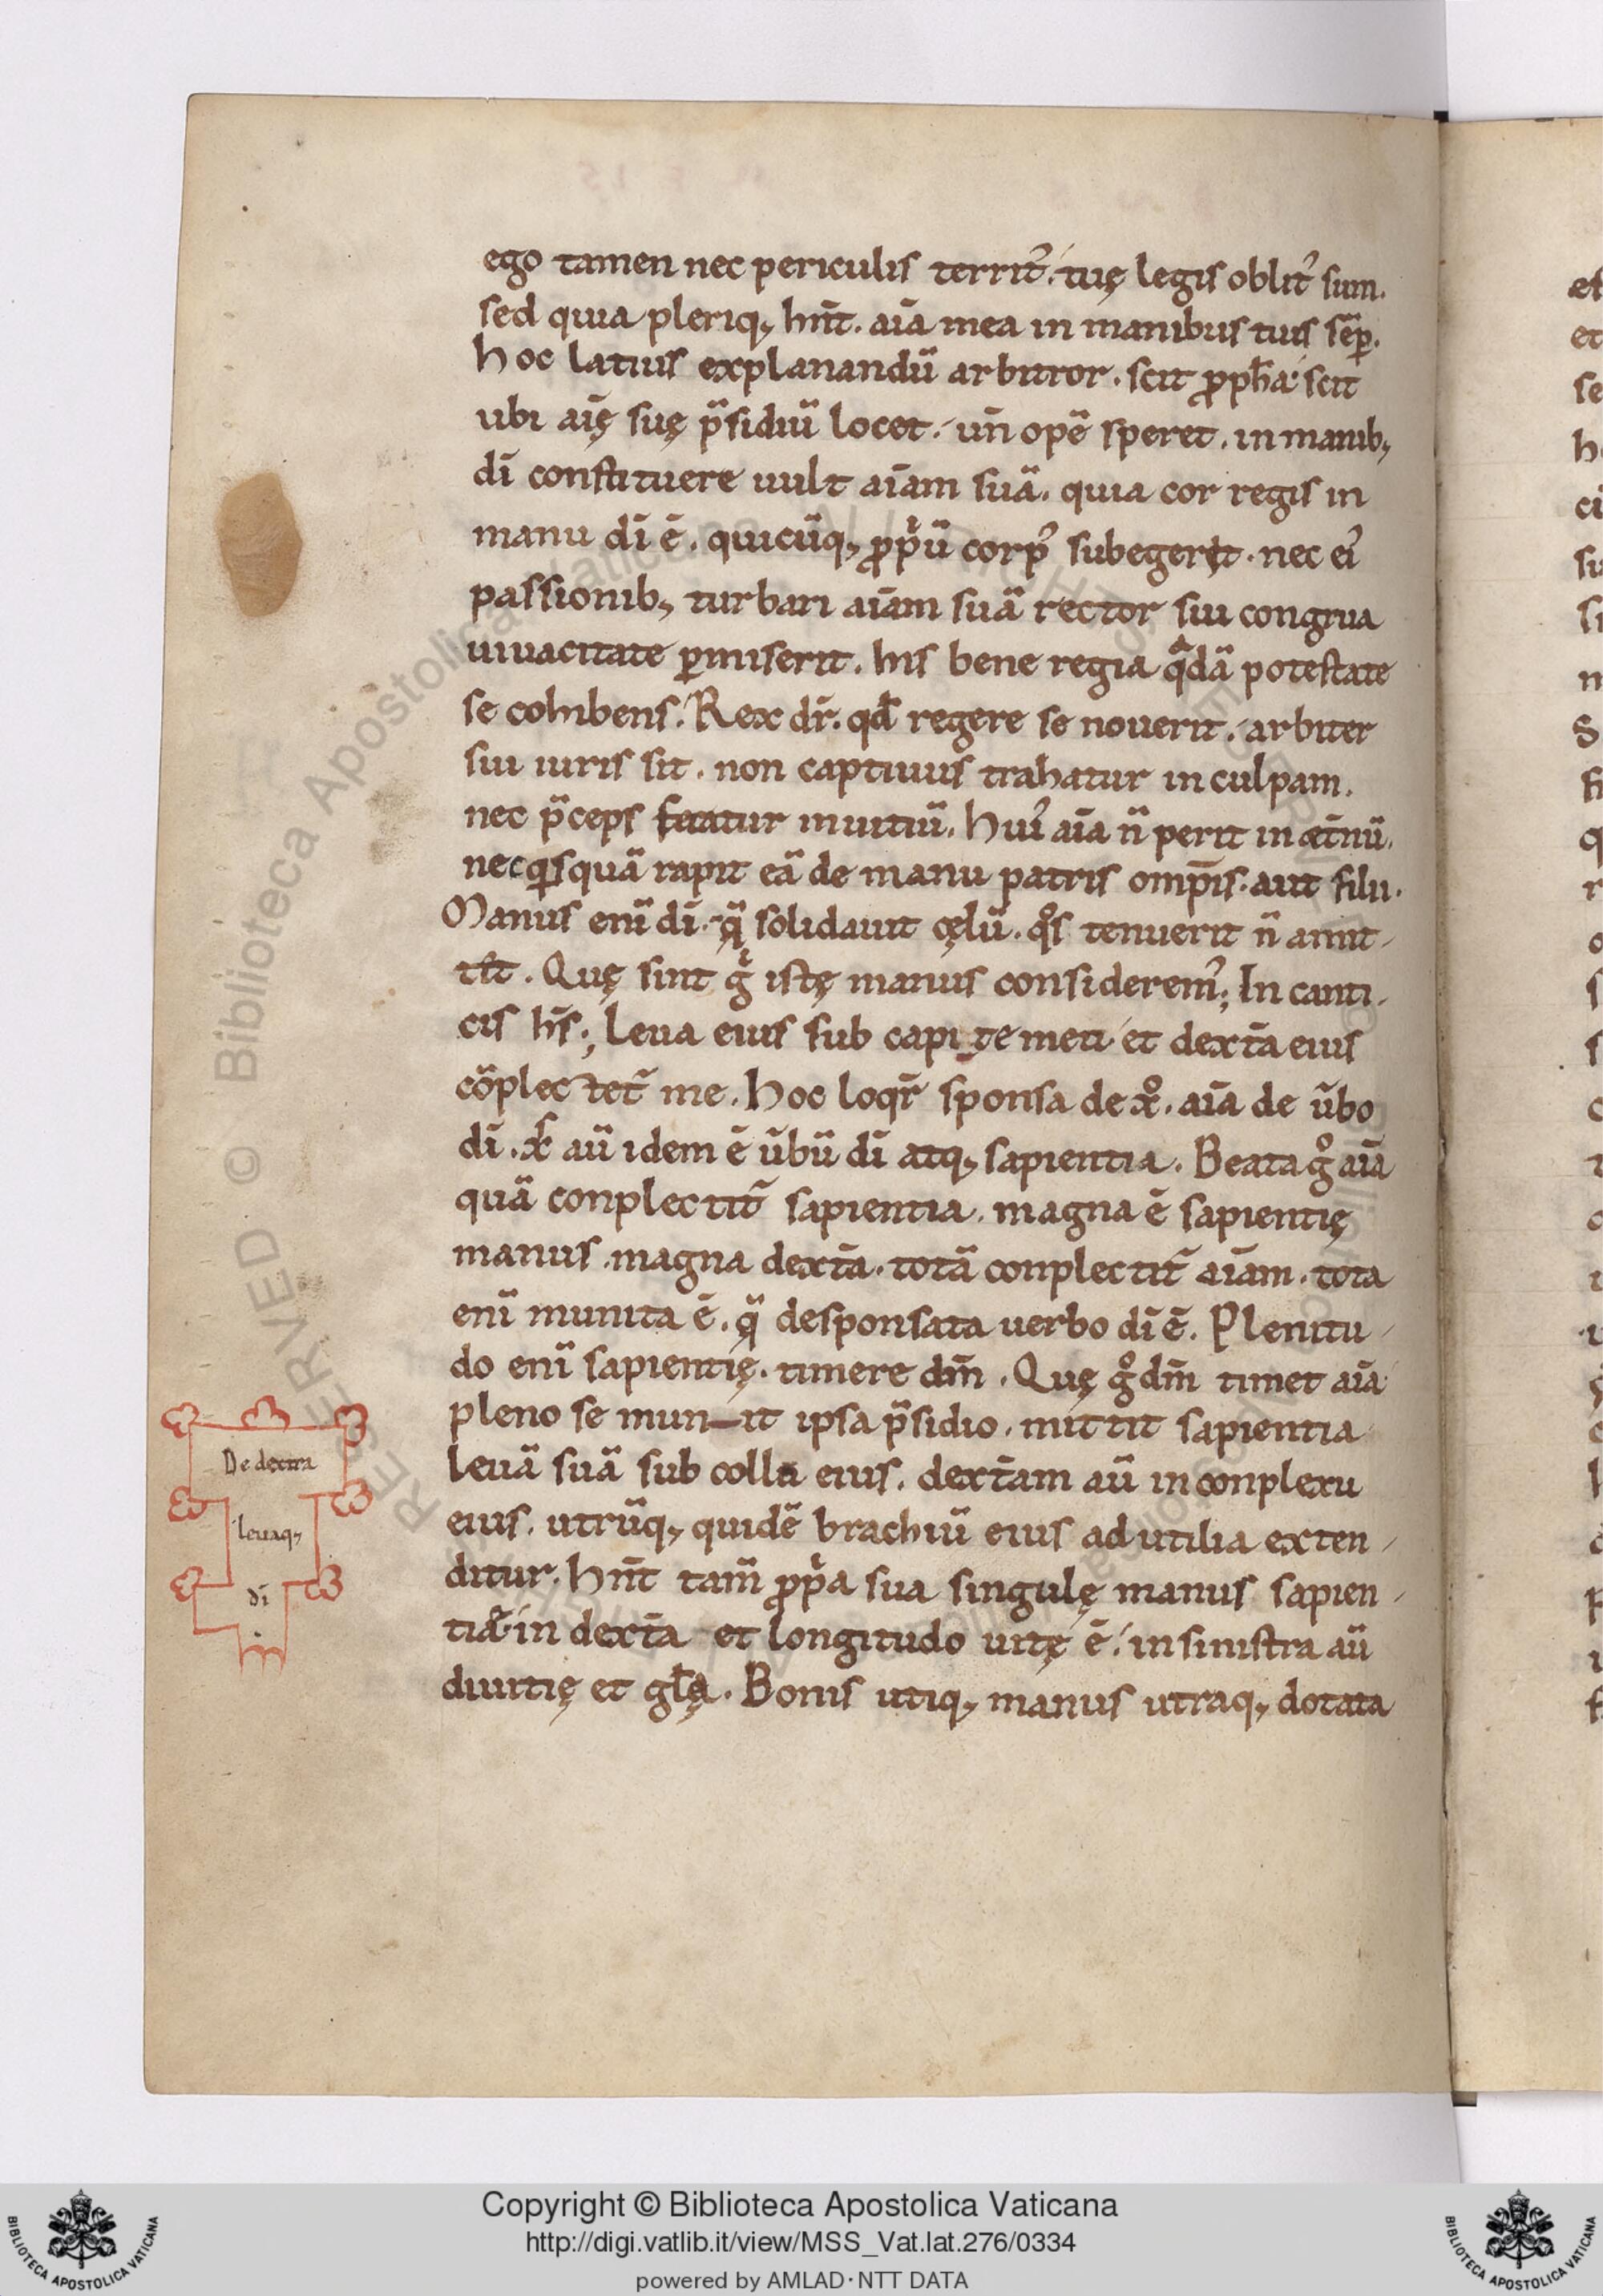 ego tamen nec periculis territ᾿. tuę legis oblit᾿ sum.
sed quia pleriq; hn̄t. aīa mea in manibus tuis sēꝑ.
hoc latius explanandū arbitror. scit ꝓph̄a scit
ubi aīę suę p̄sidiū locet. un̄ opē speret. in manib;
dī constituere uult aīam suā. quia cor regis in
manu dī ē. quicūq; ꝓpͥū corp᾿ subegerit. nec ei᾿
passionib; turbari aīam suā rector sui congrua
uiuacitate ꝑmiserit. his bene regia qͣdā potestate
se cohibens. Rex dr̄. qđ regere se nouerit. arbiter
sui iuris sit. non captiuus trahatur in culpam.
nec p̄ceps feratur in uitiū. hui᾿ aīa n̄ perit in ætn̄ū.
nec qisquā rapit eā de manu patris omp̄is. aut filii.
Manus enī dī. q̄ solidauit cęlū. qͦs tenuerit n̄ amit-
tit̄. Quę sint gͦ istę manus considerem᾿; In canti-
cis hīs; Leua eius sub capite mei et dext̄a eius
cōplectet̄ me. hoc loqr̄ sponsa de xͦ. aīa de ūbo
dī. x̄ aū idem ē ūbū dī atq; sapientia. Beata gͦ aīa
quā conplectit̄ sapientia. magna ē sapientię
manus. magna dext̄a. totā conplectit̄ aīam. tota
enī munita ē. q̄ desponsata uerbo dī ē. Plenitu-
do enī sapientię. timere dm̄. Quę gͦ dm̄ timet aīa
pleno se munit ipsa p̄sidio. mittit sapientia
leuā suā sub colla eius. dext̄am aū in conplexu
eius. utrūq; quidē brachiū eius ad utilia exten-
ditur. hn̄t tam̄ ꝓpͥa sua singulę manus sapien-
tia. in dext̄a et longitudo uitę ē. in sinistra aū
diuitię et gl̄a. Bonis utiq; manus utraq; dotata
De dextra
leuaq;
dī
ef
et
se
Copyright © Biblioteca Apostolica Vaticana
http://digi.vatlib.it/view/MSS_Vat.lat.276/0334
powered by AMLAD·NTT DATA
BIBLIOTECA APOSTOLICA VATICANA
BIBLIOTECA APOSTOLICA VATICANA